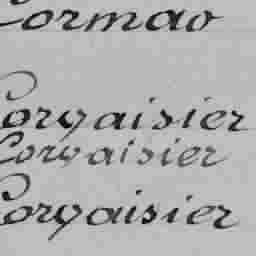 Cormao
Corvaisier
Corvaisier
Corvaisier